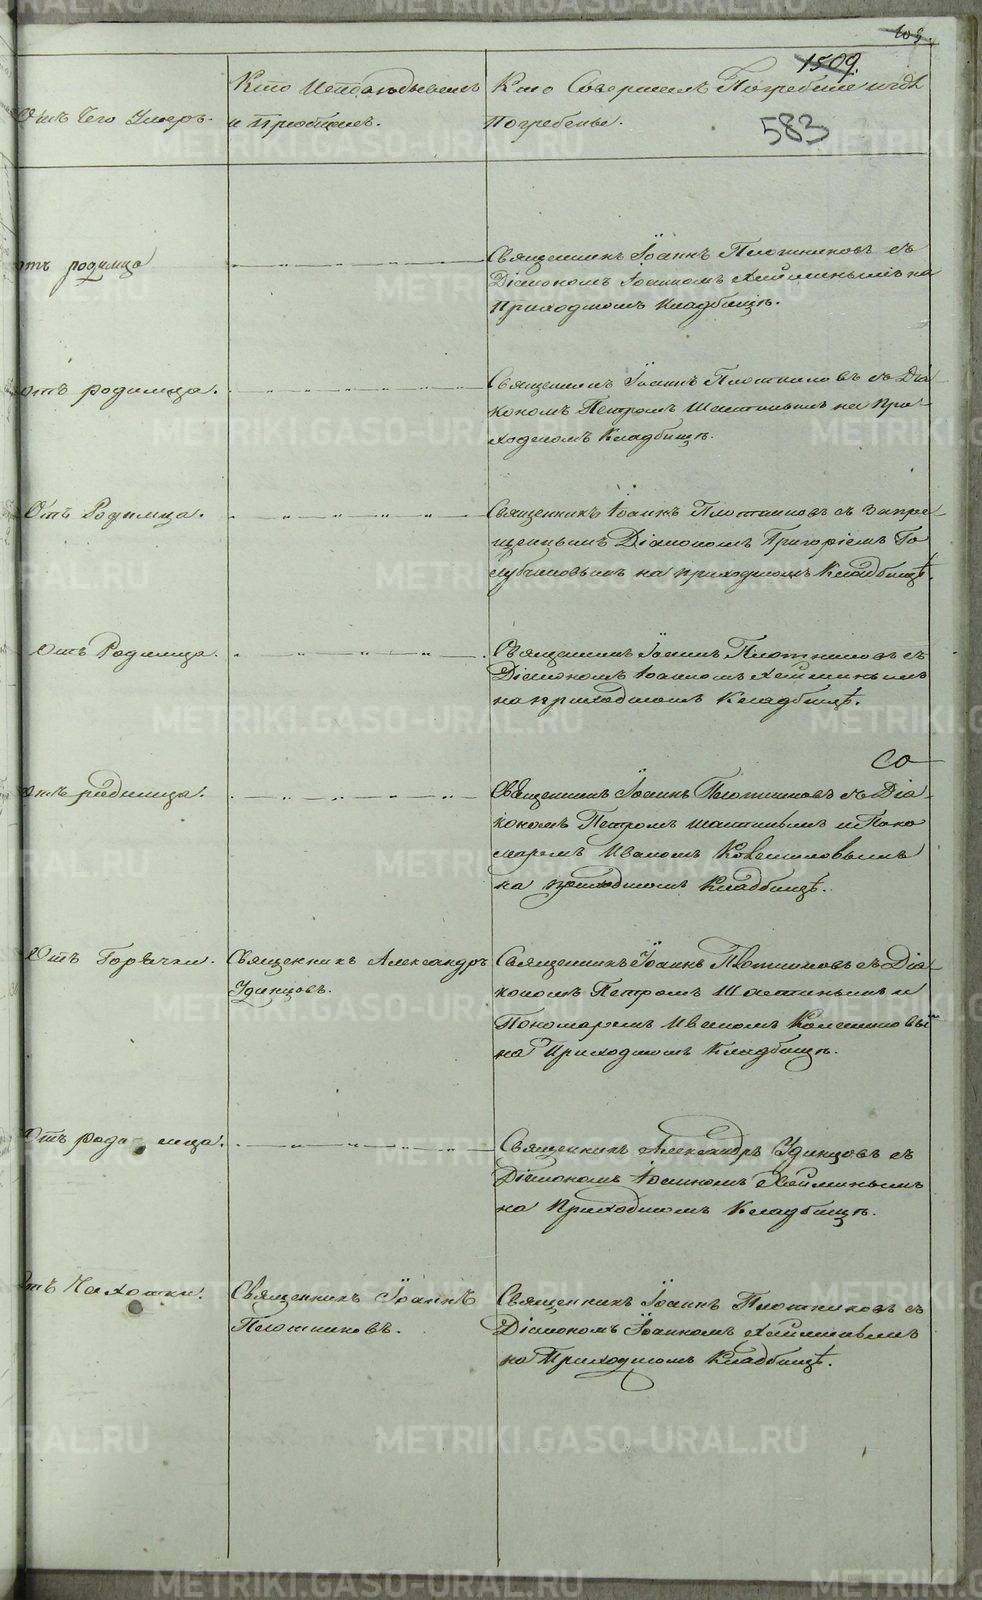 103.
1509.
583
Отъ Чего Умеръ.
Кто Исповѣдывалъ
и Приобщалъ.
Кто Совершалъ Погребеніе и гдѣ
Погребены.
отъ родимца
Священникъ Іоаннъ Плотниковъ съ
Діакономъ Іоанномъ на
Приходскомъ Кладбищѣ.
отъ родимца.
Священникъ Іоаннъ Плотниковъ съ Діа-
кономъ Петромъ на При-
ходскомъ Кладбищѣ.
Отъ Родимца.
Священникъ Іоаннъ Плотниковъ съ Запре-
щеннымъ Діакономъ Григоріемъ Го-
лубчиковымъ на приходскомъ Кладбищѣ.
Отъ Родимца.
Священникъ Іоаннъ Плотниковъ съ
Діакономъ Іоанномъ
на приходскомъ Кладбищѣ.
отъ родимца.
Священникъ Іоаннъ Плотниковъ съ Діа-
кономъ Петромъ и Поно
маремъ Иваномъ
на приходскомъ Кладбищѣ.
Отъ Горячки.
Священникъ Александръ
Удинцовъ.
Священникъ Іоаннъ Плотниковъ съ Діа-
кономъ Петромъ и
Пономаремъ Иваномъ
на Приходскомъ Кладбищѣ.
Отъ роди-мца.
Священникъ Александръ Удинцовъ съ
Діакономъ Іоанномъ
на Приходскомъ Кладбищѣ.
Отъ Чахотки.
Священникъ Іоаннъ
Плотниковъ.
Священникъ Іоаннъ Плотниковъ съ
Діакономъ Іоанномъ
на Приходскомъ Кладбищѣ.
METRIKI.GASO-URAL.RU